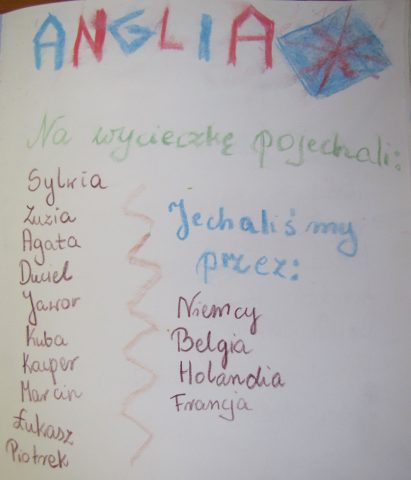 ANGLIA
Na wycieczkę pojechali:
Sylwia
Zuzia
Agata
Duciel
Jawor
Kuba
Kacper
Marcin
Łukasz
Piotrek
Jechaliśmy
przez:
Niemcy
Belgia
Holandia
Francja